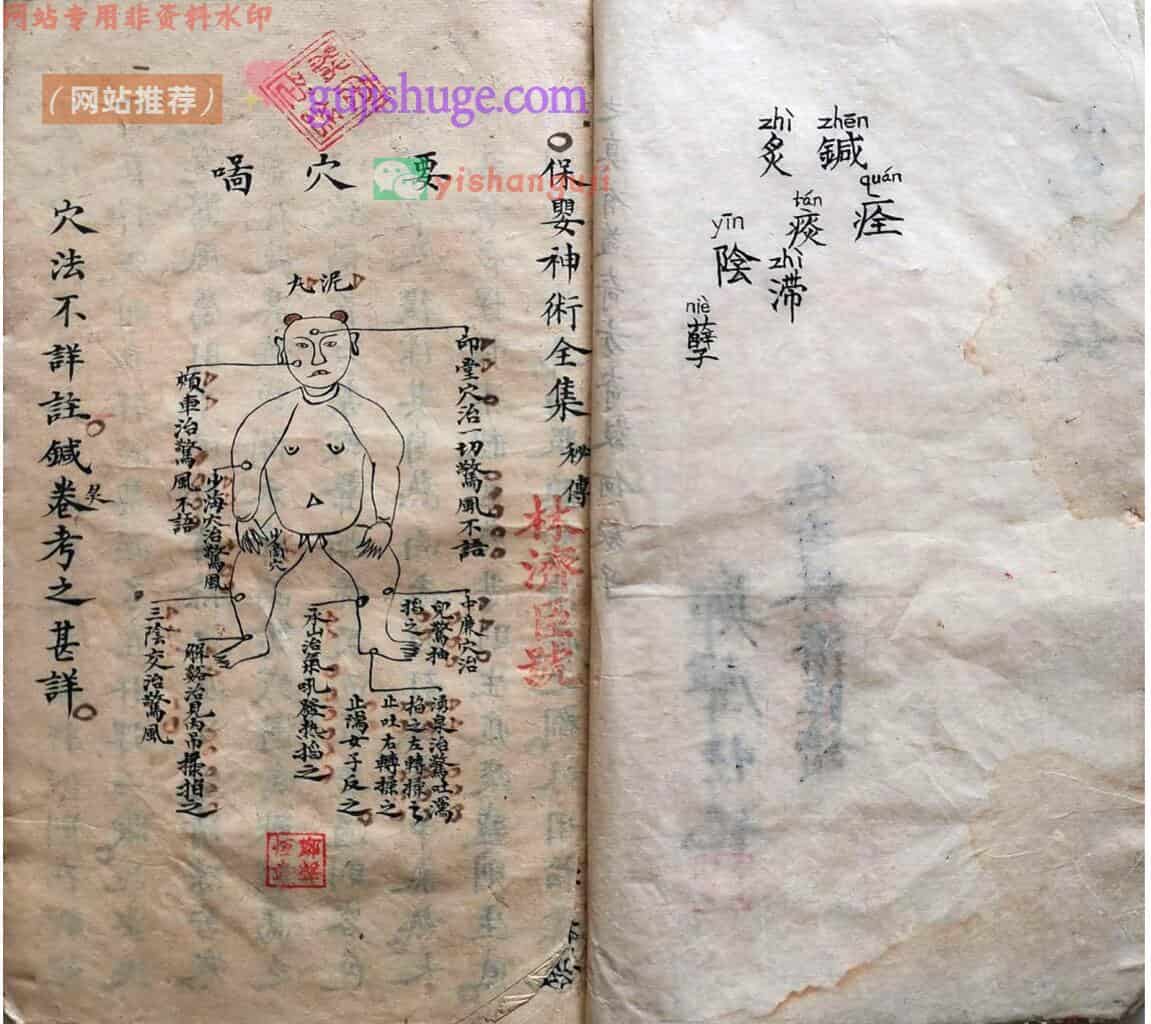 网站专用非资料水印
（网站推荐）
gujishuge.com
yishanguji
zhì zhēn
炙 鍼
quán
痊
tán
痰
yīn
陰
zhì
滞
niè
孽
保嬰神術全集 秘傳
林濟臣號
要穴啚
泥丸
印堂穴治一切驚風不語
頰車治驚風不語
少海穴治驚風
中廉穴治
兒驚抽
掐之
湧泉治驚吐瀉
掐之左轉揉之
止吐右轉揉之
止瀉女子反之
承山治氣吼發热掐之
解谿治見内吊揉掐之
三陰交治驚風
穴法不詳註鍼炙卷考之甚詳